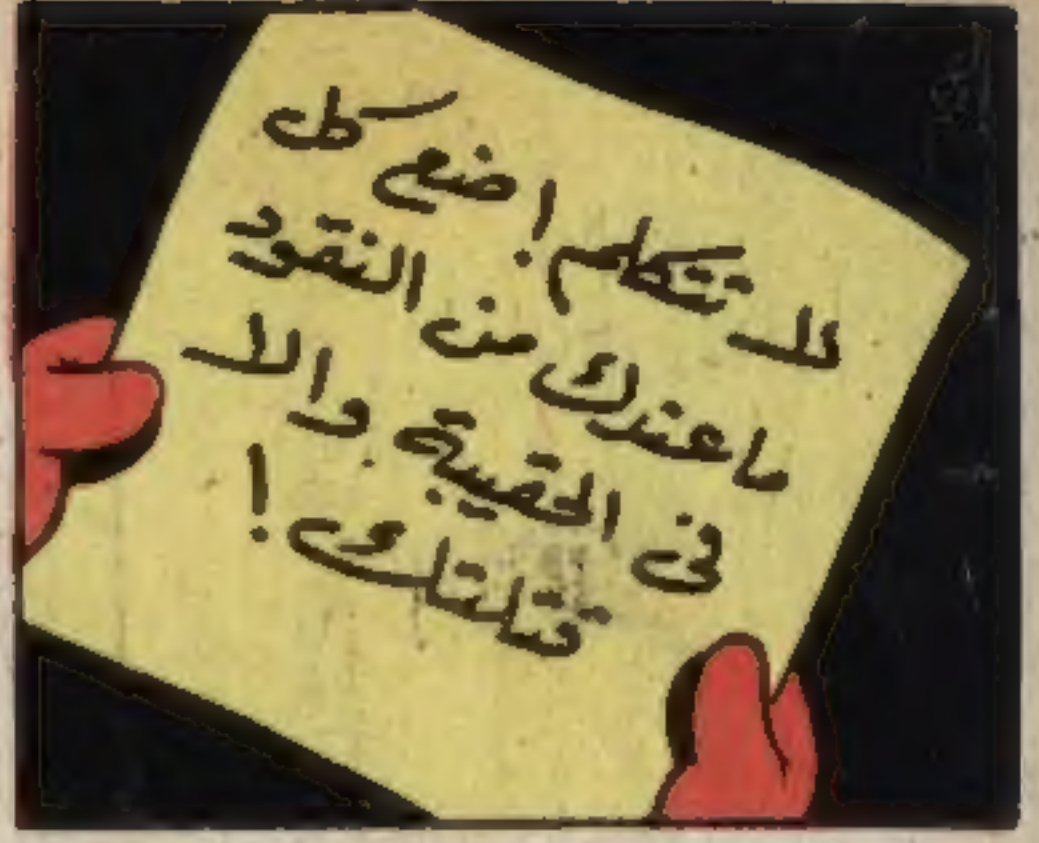 لا تتكلم! ضع كل
ما عندك من النقود
فى الحقيبة والا
قتلتك!